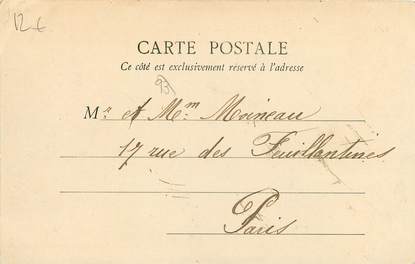 12 €
CARTE POSTALE
Ce côté est exclusivement réservé à l'adresse
93
Mr et Mme Moineau
17 rue des Feuillantines
Paris